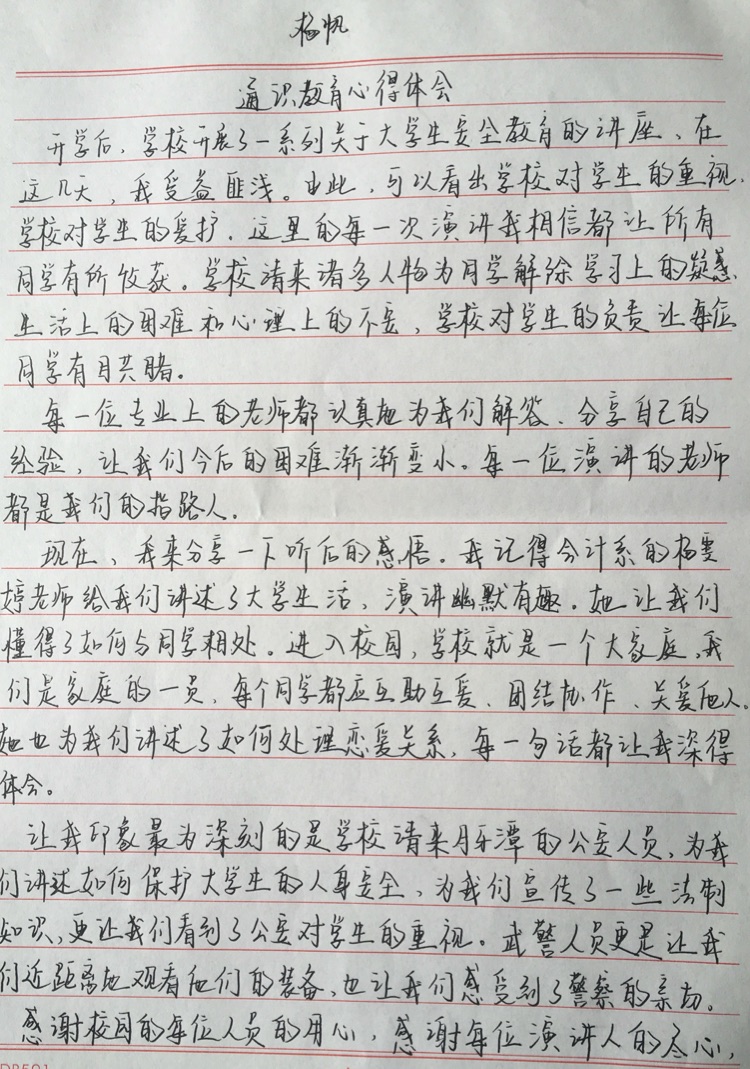 杨帆
通识教育心得体会
开学后，学校开展了一系列关于大学生安全教育的讲座、在
这几天，我受益匪浅。由此，可以看出学校对学生的重视，
学校对学生的爱护，这里的每一次演讲我相信都让所有
同学有所收获。学校请来诸多人物为同学解除学习上的疑惑，
生活上的困难和心理上的不安，学校对学生的负责让每位
同学有目共睹。
每一位专业上的老师都认真地为我们解答、分享自己的
经验，让我们今后的困难渐渐变小。每一位演讲的老师
都是我们的指路人。
现在，我来分享一下听后的感悟。我记得会计系的杨雯
婷老师给我们讲述了大学生活，演讲幽默有趣。她让我们
懂得了如何与同学相处。进入校园，学校就是一个大家庭，我
们是家庭的一员，每个同学都应互助互爱、团结协作、关爱他人。
她也为我们讲述了如何处理恋爱关系，每一句话都让我深得
体会。
让我印象最为深刻的是学校请来月牙潭的公安人员，为我
们讲述如何保护大学生的人身安全，为我们宣传了一些法制
知识，更让我们看到了公安对学生的重视。武警人员更是让我
们近距离地观看他们的装备，也让我们感受到了警察的亲切。
感谢校园的每位人员的用心，感谢每位演讲人的尽心，